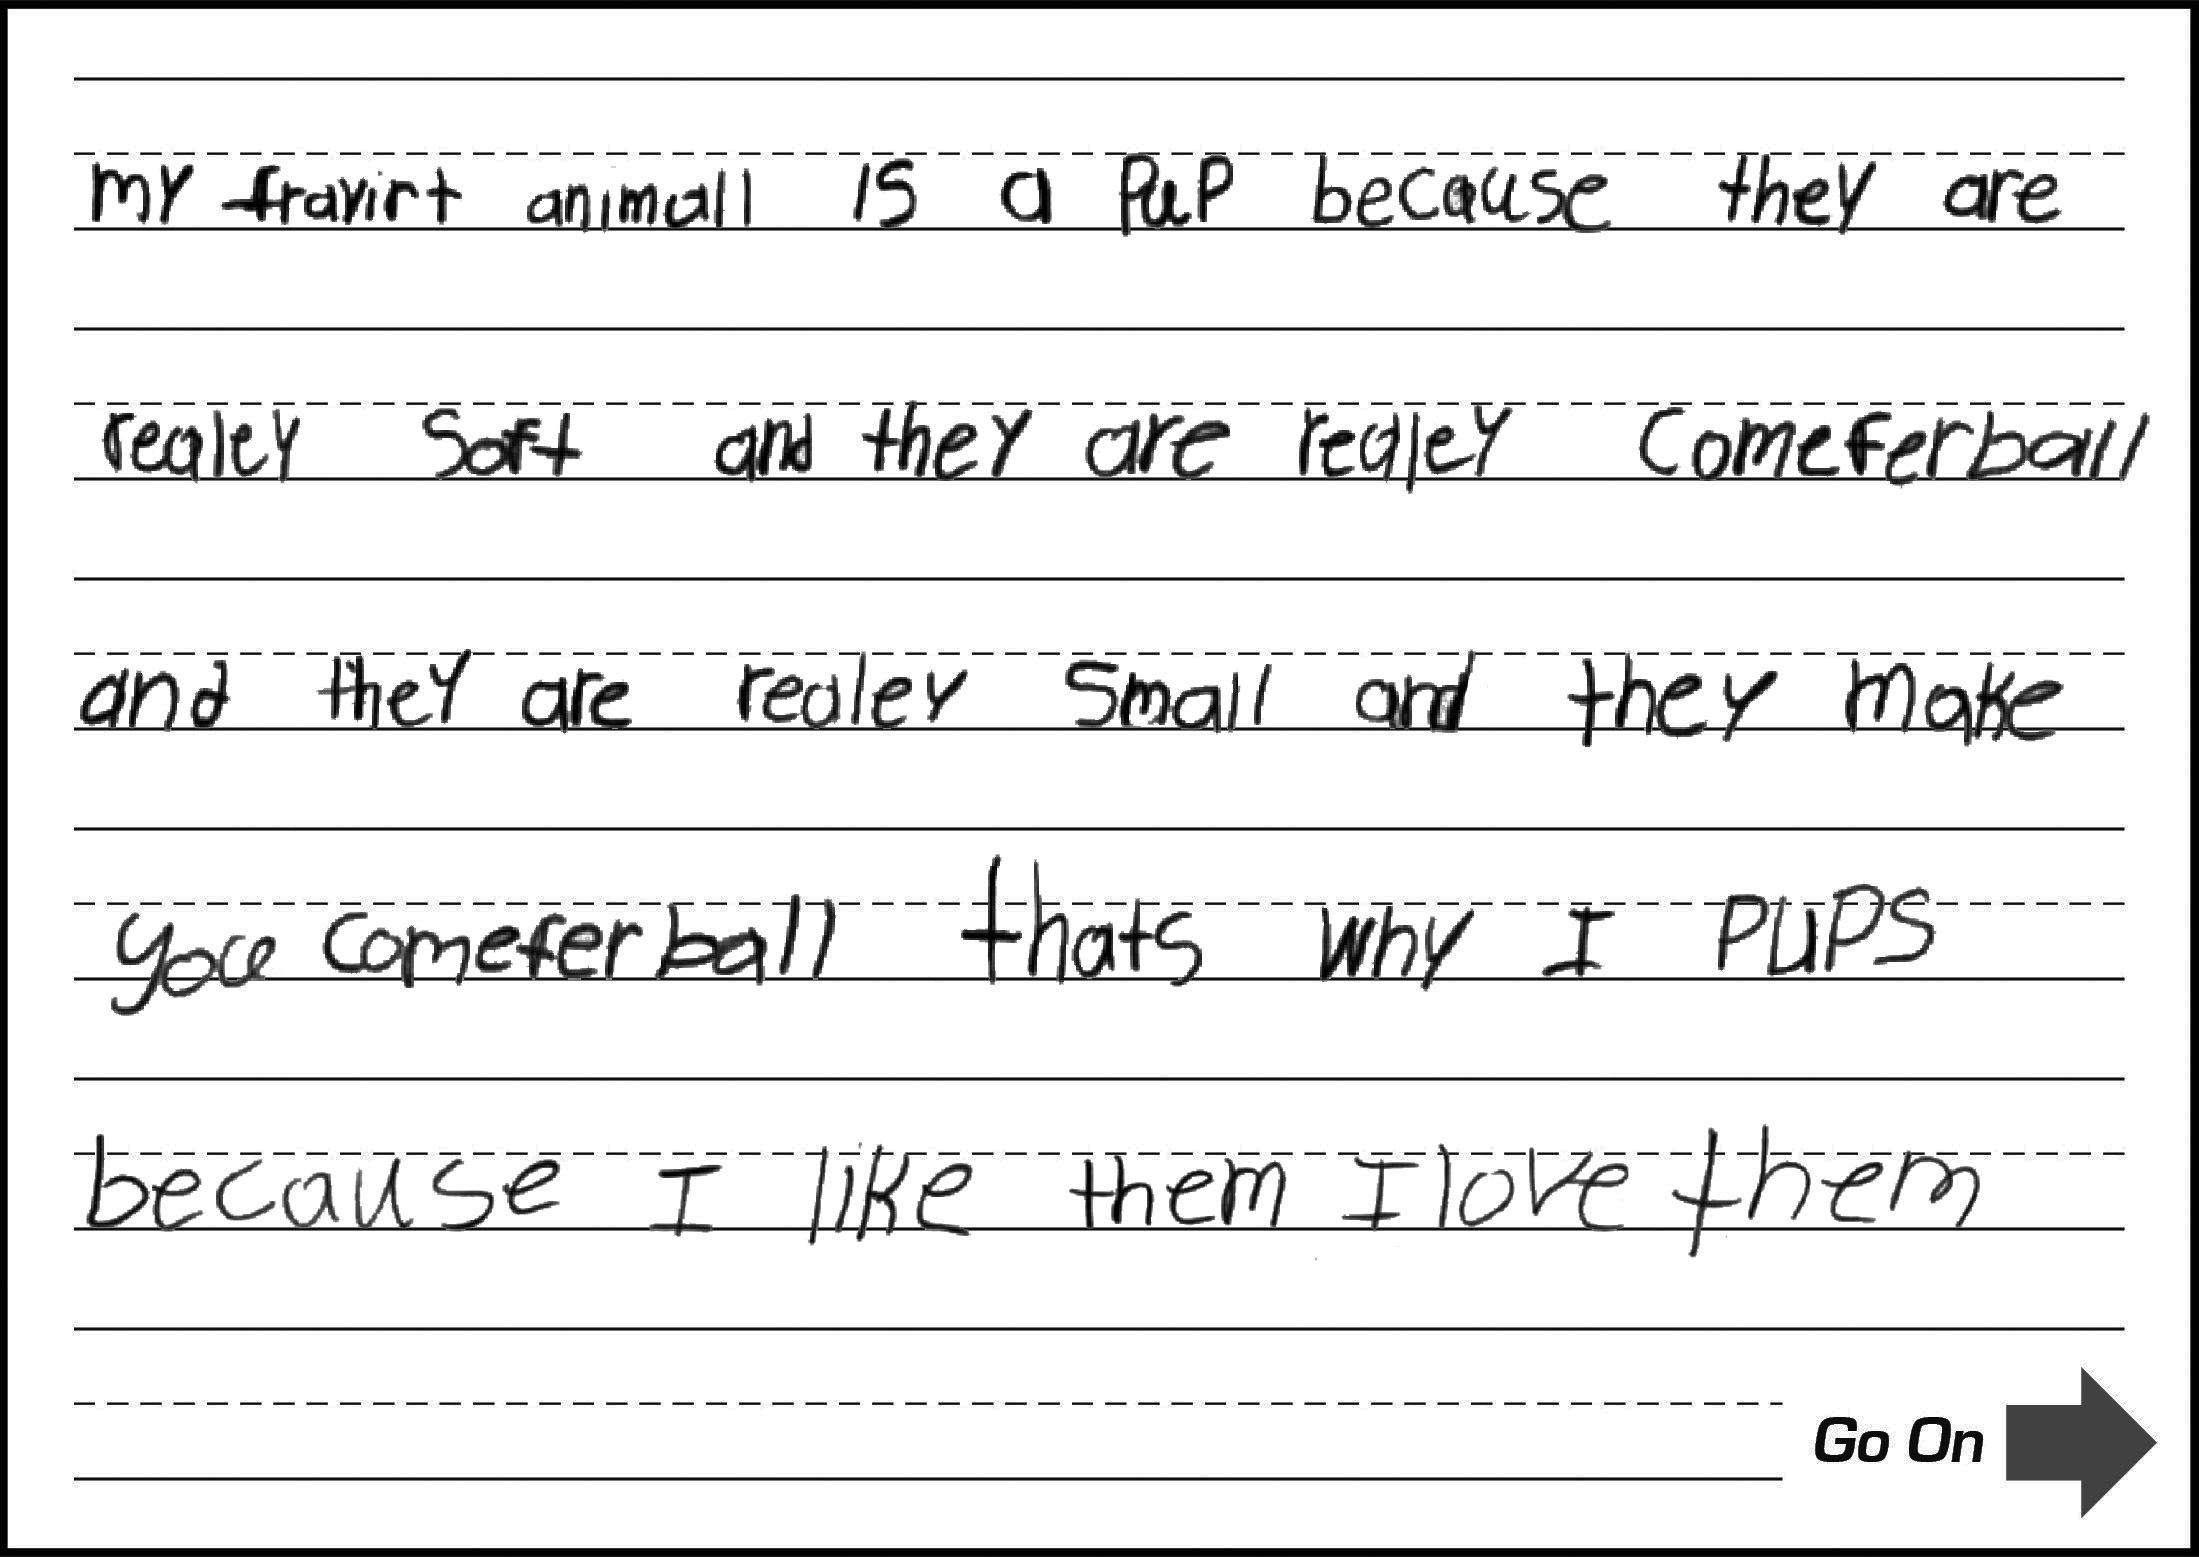 my fravirt animall is a pup because they are
realey Soft and they are realey Comeferball
and they are realey Small and they make
you comeferball thats why I PUPS
because I like them I love them
Go On